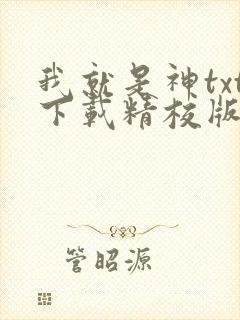 我就是神txt
下载精校版
管昭源